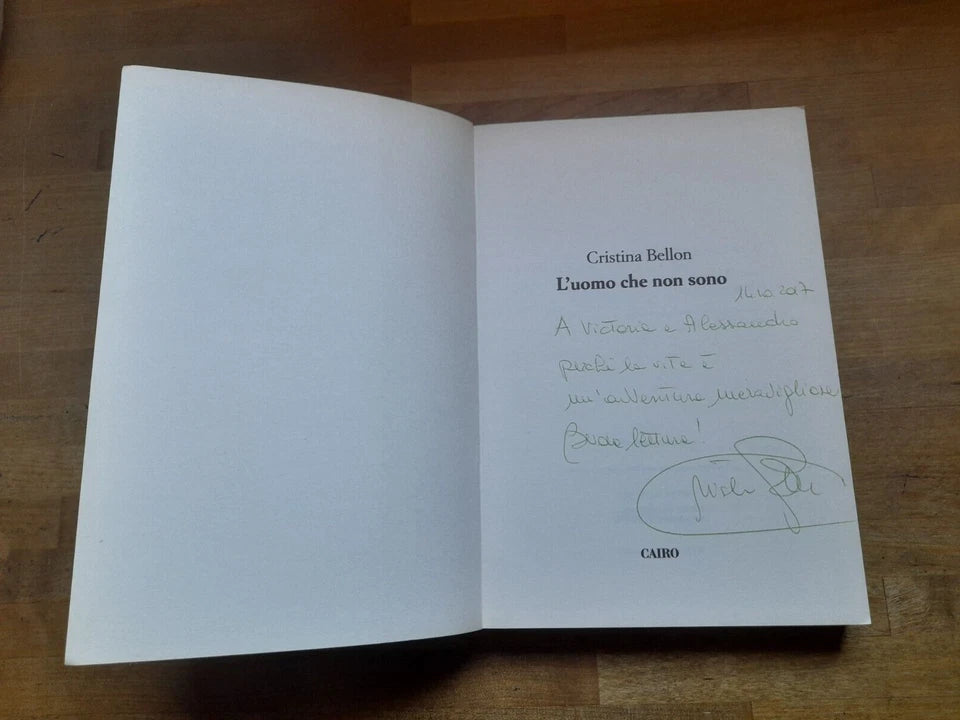 Cristina Bellon
L'uomo che non sono
14.10.2017
A Victoria e Alessandro
perché la vita è
un'avventura meravigliosa
Buona lettura!
CAIRO